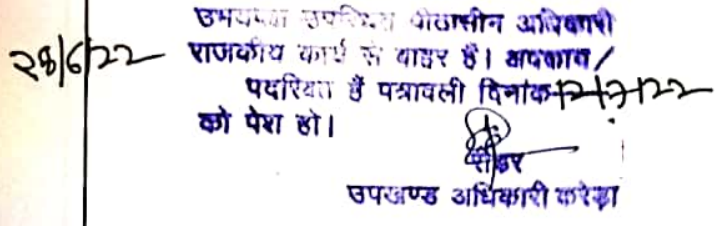 उभयपक्ष उपस्थित पीठासीन अधिकारी
28/6/22 राजकीय कार्य से बाहर है। अवकाश/
पदरिक्त है पत्रावली दिनांक 12/7/22
को पेश हो।
रीडर
उपखण्ड अधिकारी करेड़ा